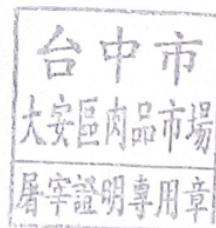 台中市
大安區肉品市場
屠宰證明專用章